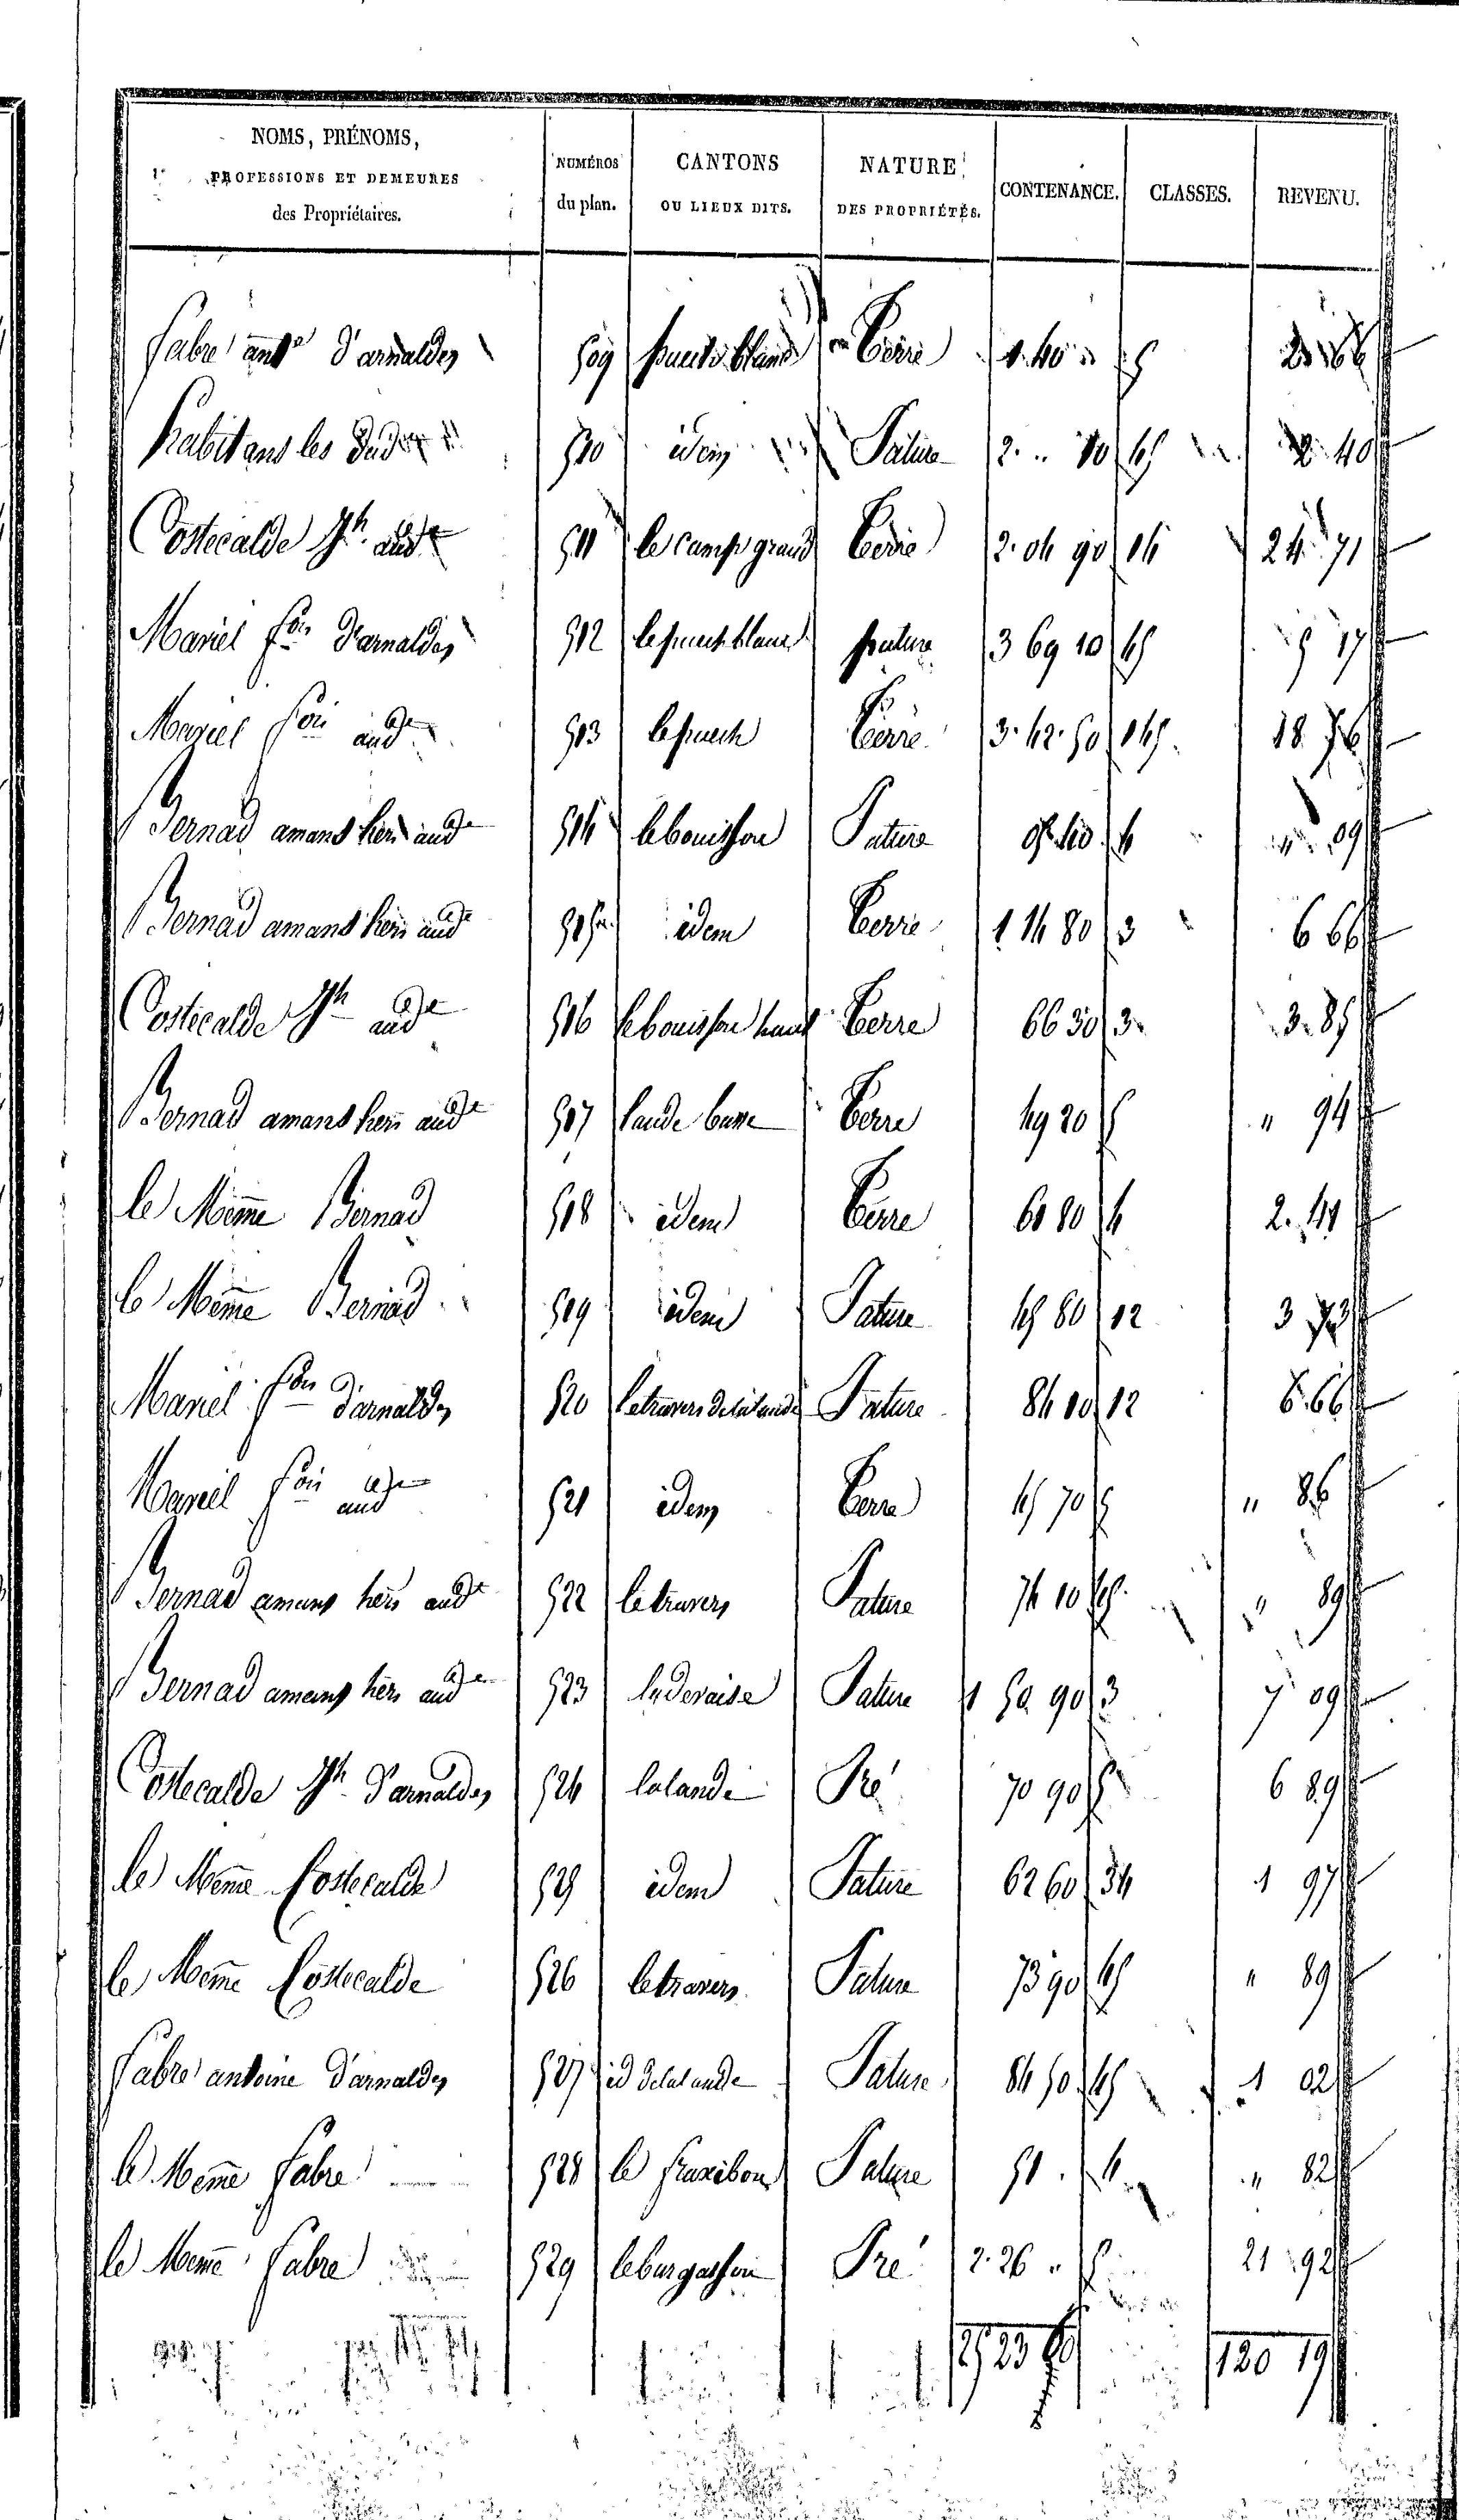 NOMS, PRÉNOMS, PROFESSIONS ET DEMEURES des Propriétaires. NUMÉROS du plan. CANTONS OU LIEUX DITS. NATURE DES PROPRIÉTÉS. CONTENANCE. CLASSES. REVENU.
fabre ant.e d'arnaldes 509 puech blanc Terre 1.40 " 5
habitans les dud 510 idem Pature 2. .. 10 45 2. 40
Costecalde Jh. aud 511 le camp grand Terre 2. 04 90 14 24. 71
Mariel fois d'arnaldes 512 le puech blanc pature 3 69 10 45 5 17
Mariel fois aud 513 le puech Terre 3. 42. 50 145 18 76
Bernad amans hers aud 514 le bouisson Pature 4 " 09
Bernad amans hers aud 515 idem Terre 1 14 80 3 6 66
Costecalde Jh aud 516 le bouisson haut Terre 66 30 3 3. 85
Bernad amans hers aud 517 lande basse Terre 49 20 5 " 94
le Même Bernad 518 idem Terre 60 80 4 2. 41
le Même Bernad 519 idem Pature 45 80 12 3
Mariel fois d'arnaldes 520 le travers de la lande Pature 84 10 12 6. 66
Mariel fois aud 521 idem Terre 45 70 5 " 86
Bernad amans hers aud 522 le travers Pature 74 10 45 " 89
Bernad amans hers aud 523 la devaise Pature 1 50 90 3 7 09
Costecalde Jh d'arnaldes 524 la lande Pré 70 90 5 6 89
le Même Costecalde 525 idem Pature 62 60 34 1 97
le Même Costecalde 526 le travers Pature 73 90 45 " 89
fabre antoine d'arnaldes 527 id de la lande Pature 84 50 45 1 02
le Même fabre 528 le Pature 51 . 4 " 82
le Même fabre 529 Pré 2. 26 " 5 21 92
25 23 120 19